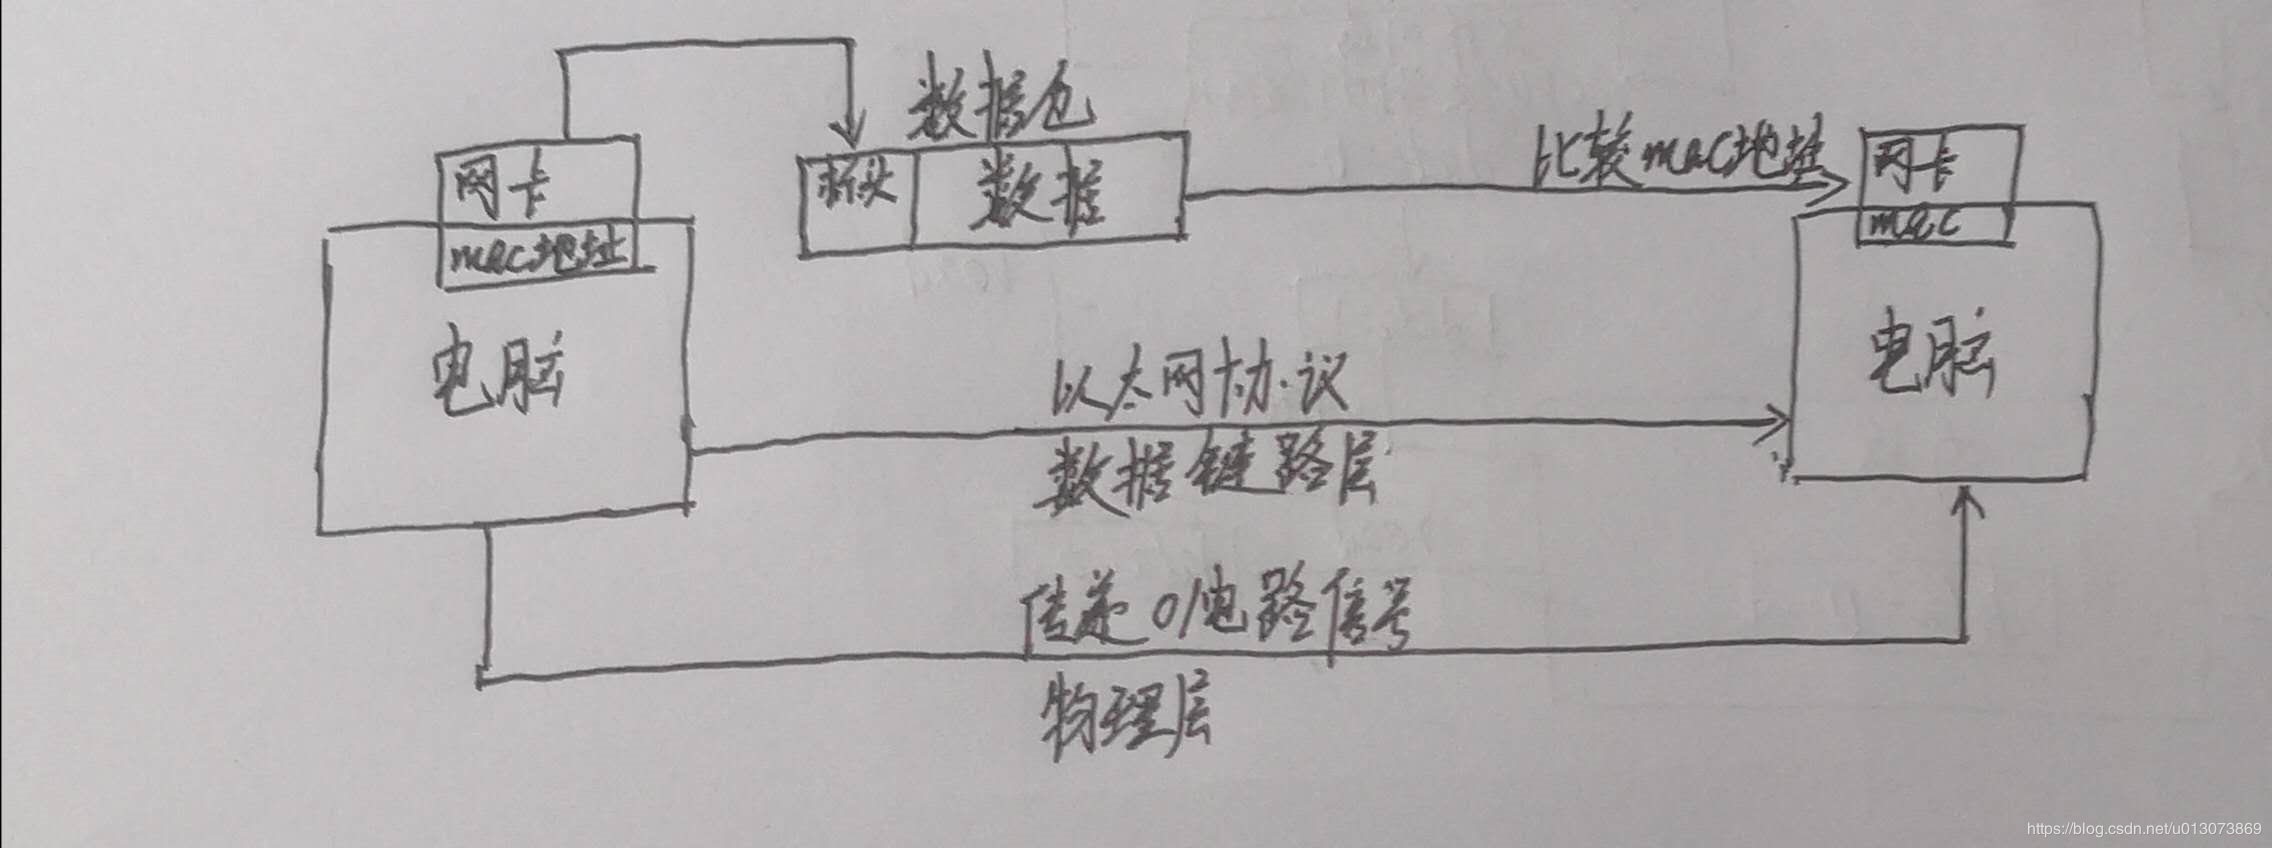 数据包
网卡
标头
数据
比较mac地址
网卡
mac地址
mac
电脑
电脑
以太网协议
数据链路层
传递01电路信号
物理层
https://blog.csdn.net/u013073869